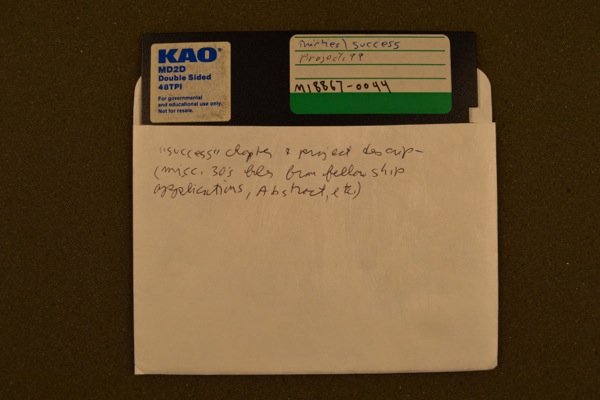 KAO
MD2D
Double Sided
48TPI
For governmental
and educational use only.
Not for resale.
success
M18867-0044
"success" chapter & project descrip-
(misc. 30's files from fellowship
applications, Abstract, etc.)